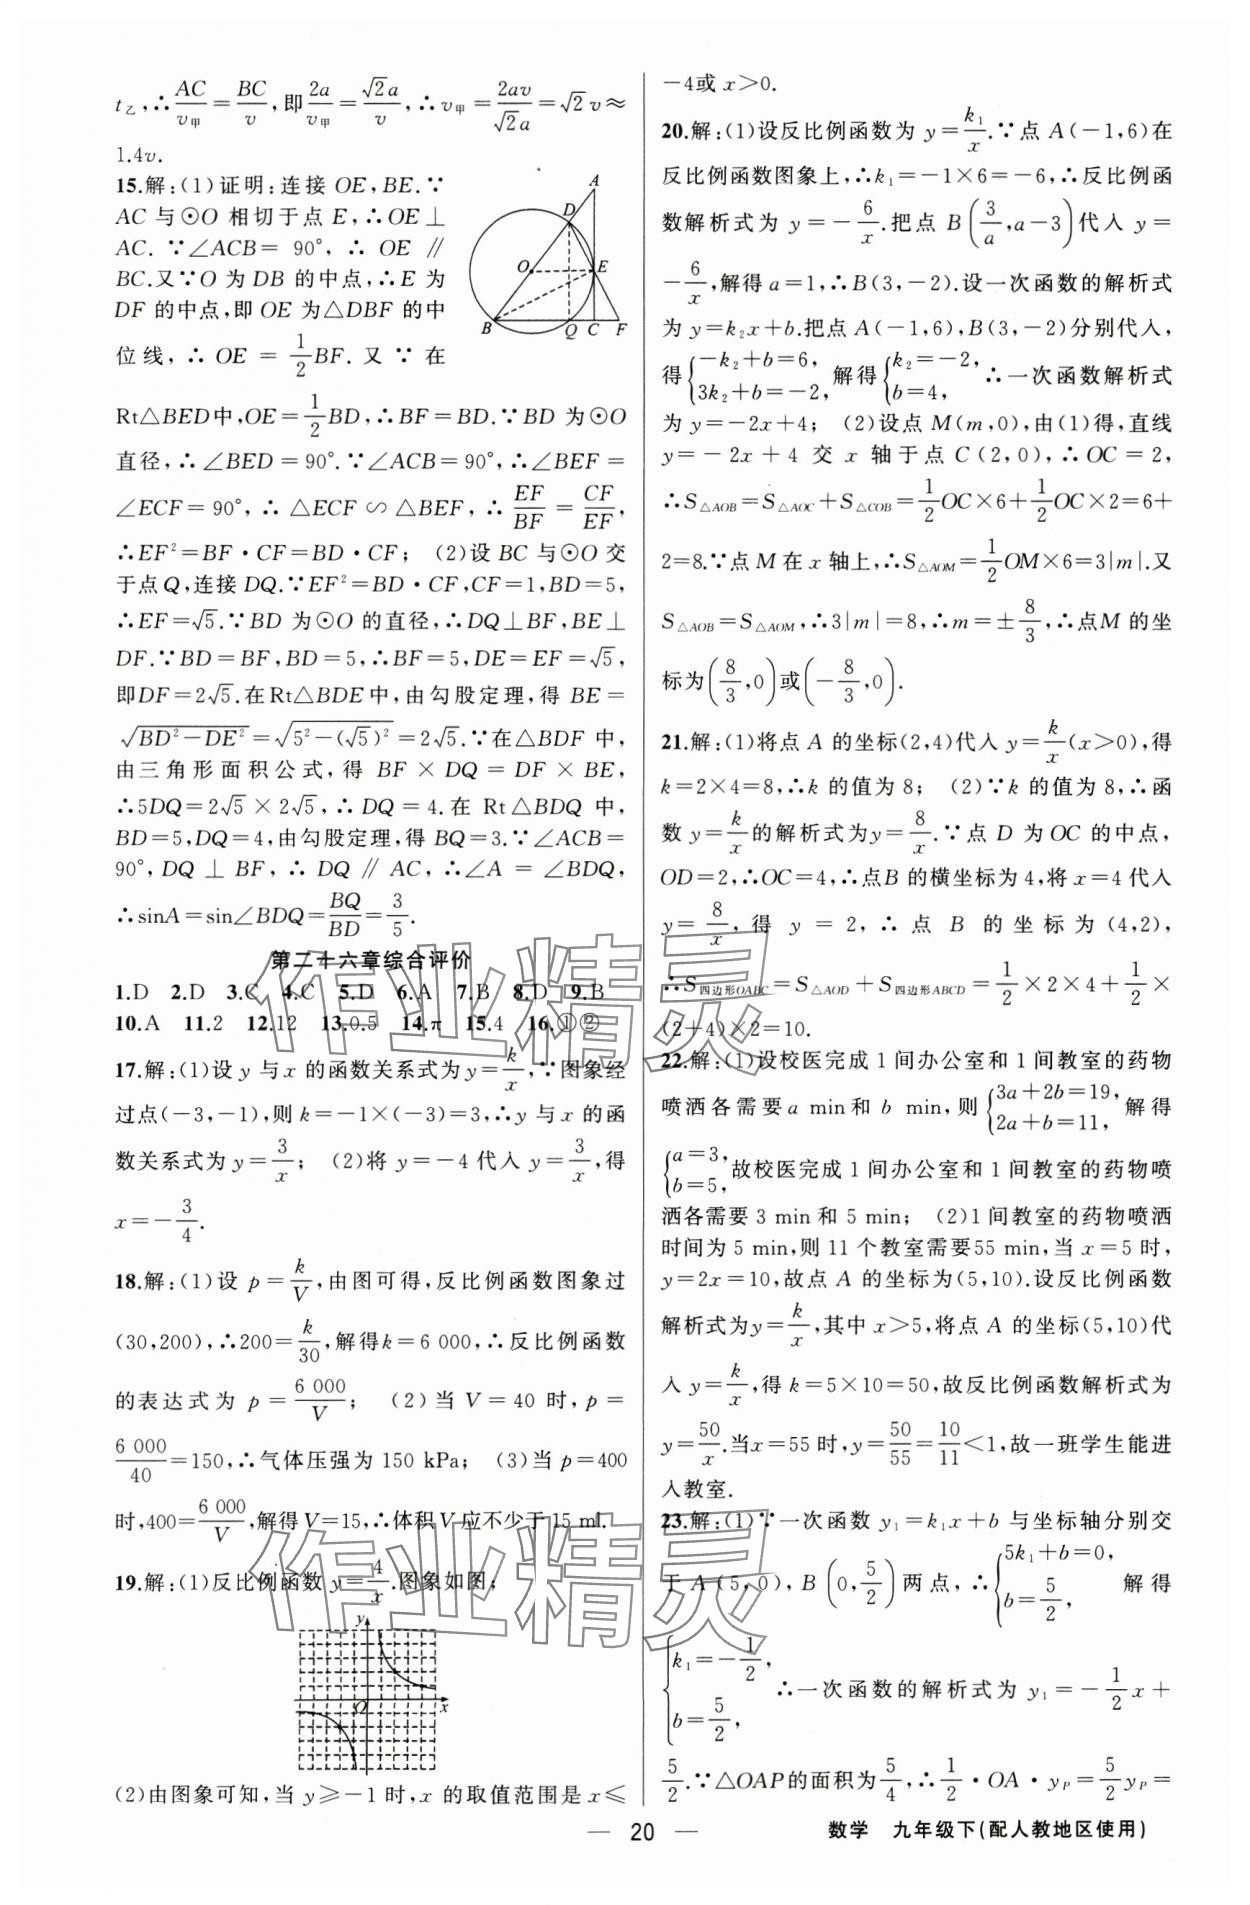 t乙,∴AC/v甲=BC/v,即2a/v甲=√2a/v,∴v甲=2av/√2a=√2v≈
1.4v.
15.解:(1)证明:连接 OE,BE.∵
AC 与⊙O 相切于点 E,∴OE⊥
AC. ∵∠ACB= 90°, ∴ OE ∥
BC.又∵O 为 DB 的中点,∴E 为
DF 的中点,即 OE 为△DBF 的中
位线, ∴ OE = 1/2 BF. 又 ∵ 在
A
D
O
E
B
Q
C
F
Rt△BED中,OE=1/2BD,∴BF=BD.∵BD 为⊙O
直径,∴∠BED=90°.∵∠ACB=90°,∴∠BEF=
∠ECF=90°,∴ △ECF∽△BEF,∴EF/BF=CF/EF,
∴EF²=BF·CF=BD·CF; (2)设 BC 与⊙O 交
于点 Q,连接 DQ.∵EF²=BD·CF,CF=1,BD=5,
∴EF=√5.∵BD 为⊙O 的直径,∴DQ⊥BF,BE⊥
DF.∵BD=BF,BD=5,∴BF=5,DE=EF=√5,
即DF=2√5.在Rt△BDE中,由勾股定理,得 BE=
√(BD²-DE²)=√(5²-(√5)²)=2√5.∵在△BDF 中,
由三角形面积公式,得 BF × DQ = DF × BE,
∴5DQ=2√5×2√5,∴DQ=4.在 Rt△BDQ 中,
BD=5,DQ=4,由勾股定理,得 BQ=3.∵∠ACB=
90°,DQ ⊥ BF,∴ DQ ∥ AC,∴∠A = ∠BDQ,
∴sinA=sin∠BDQ=BQ/BD=3/5.
第二十六章综合评价
1.D 2.D 3.C 4.C 5.D 6.A 7.B 8.D 9.B
10.A 11.2 12.12 13.0.5 14.π 15.4 16.①②
17.解:(1)设 y 与 x 的函数关系式为y=k/x,∵图象经
过点(-3,-1),则 k=-1×(-3)=3,∴y 与 x 的函
数关系式为 y=3/x; (2)将 y=-4 代入 y=3/x,得
x=-3/4.
18.解:(1)设 p=k/V,由图可得,反比例函数图象过
(30,200),∴200=k/30,解得k=6 000,∴反比例函数
的表达式为 p=6 000/V; (2)当 V=40 时,p=
6 000/40=150,∴气体压强为 150 kPa; (3)当 p=400
时,400=6 000/V,解得V=15,∴体积V应不少于15 ml.
19.解:(1)反比例函数 y=4/x.图象如图;
y
O
x
(2)由图象可知,当 y≥-1时,x 的取值范围是 x≤
-4或 x>0.
20.解:(1)设反比例函数为 y=k₁/x.∵点 A(-1,6)在
反比例函数图象上,∴k₁=-1×6=-6,∴反比例函
数解析式为 y=-6/x.把点 B(3/a,a-3)代入 y=
-6/x,解得 a=1,∴B(3,-2).设一次函数的解析式
为 y=k₂x+b.把点 A(-1,6),B(3,-2)分别代入,
得{-k₂+b=6, 3k₂+b=-2, 解得{k₂=-2, b=4, ∴一次函数解析式
为 y=-2x+4; (2)设点 M(m,0),由(1)得,直线
y=-2x+4 交 x 轴于点 C(2,0),∴OC=2,
∴S△AOB=S△AOC+S△COB=1/2OC×6+1/2OC×2=6+
2=8.∵点 M 在 x 轴上,∴S△AOM=1/2OM×6=3|m|.又
S△AOB=S△AOM,∴3|m|=8,∴m=±8/3,∴点M 的坐
标为(8/3,0)或(-8/3,0).
21.解:(1)将点 A 的坐标(2,4)代入 y=k/x(x>0),得
k=2×4=8,∴k 的值为 8; (2)∵k 的值为 8,∴函
数 y=k/x的解析式为y=8/x.∵点 D 为 OC 的中点,
OD=2,∴OC=4,∴点B 的横坐标为 4,将 x=4代入
y=8/x,得 y=2,∴点 B 的坐标为(4,2),
∴S四边形OABC=S△AOD+S四边形ABCD=1/2×2×4+1/2×
(2+4)×2=10.
22.解:(1)设校医完成 1 间办公室和 1 间教室的药物
喷洒各需要a min和 b min,则{3a+2b=19, 2a+b=11, 解得
{a=3, b=5, 故校医完成 1 间办公室和 1 间教室的药物喷
洒各需要 3 min 和 5 min; (2)1 间教室的药物喷洒
时间为 5 min,则 11 个教室需要55 min,当 x=5 时,
y=2x=10,故点 A 的坐标为(5,10).设反比例函数
解析式为y=k/x,其中 x>5,将点 A 的坐标(5,10)代
入 y=k/x,得 k=5×10=50,故反比例函数解析式为
y=50/x.当x=55 时,y=50/55=10/11<1,故一班学生能进
入教室.
23.解:(1)∵一次函数 y₁=k₁x+b 与坐标轴分别交
于 A(5,0),B(0,5/2)两点,∴{5k₁+b=0, b=5/2, 解得
{k₁=-1/2, b=5/2, ∴一次函数的解析式为 y₁=-1/2x+
5/2.∵△OAP的面积为5/4,∴1/2·OA·yP=5/2yP=
— 20 —
数学 九年级下(配人教地区使用)
作业精灵
作业精灵